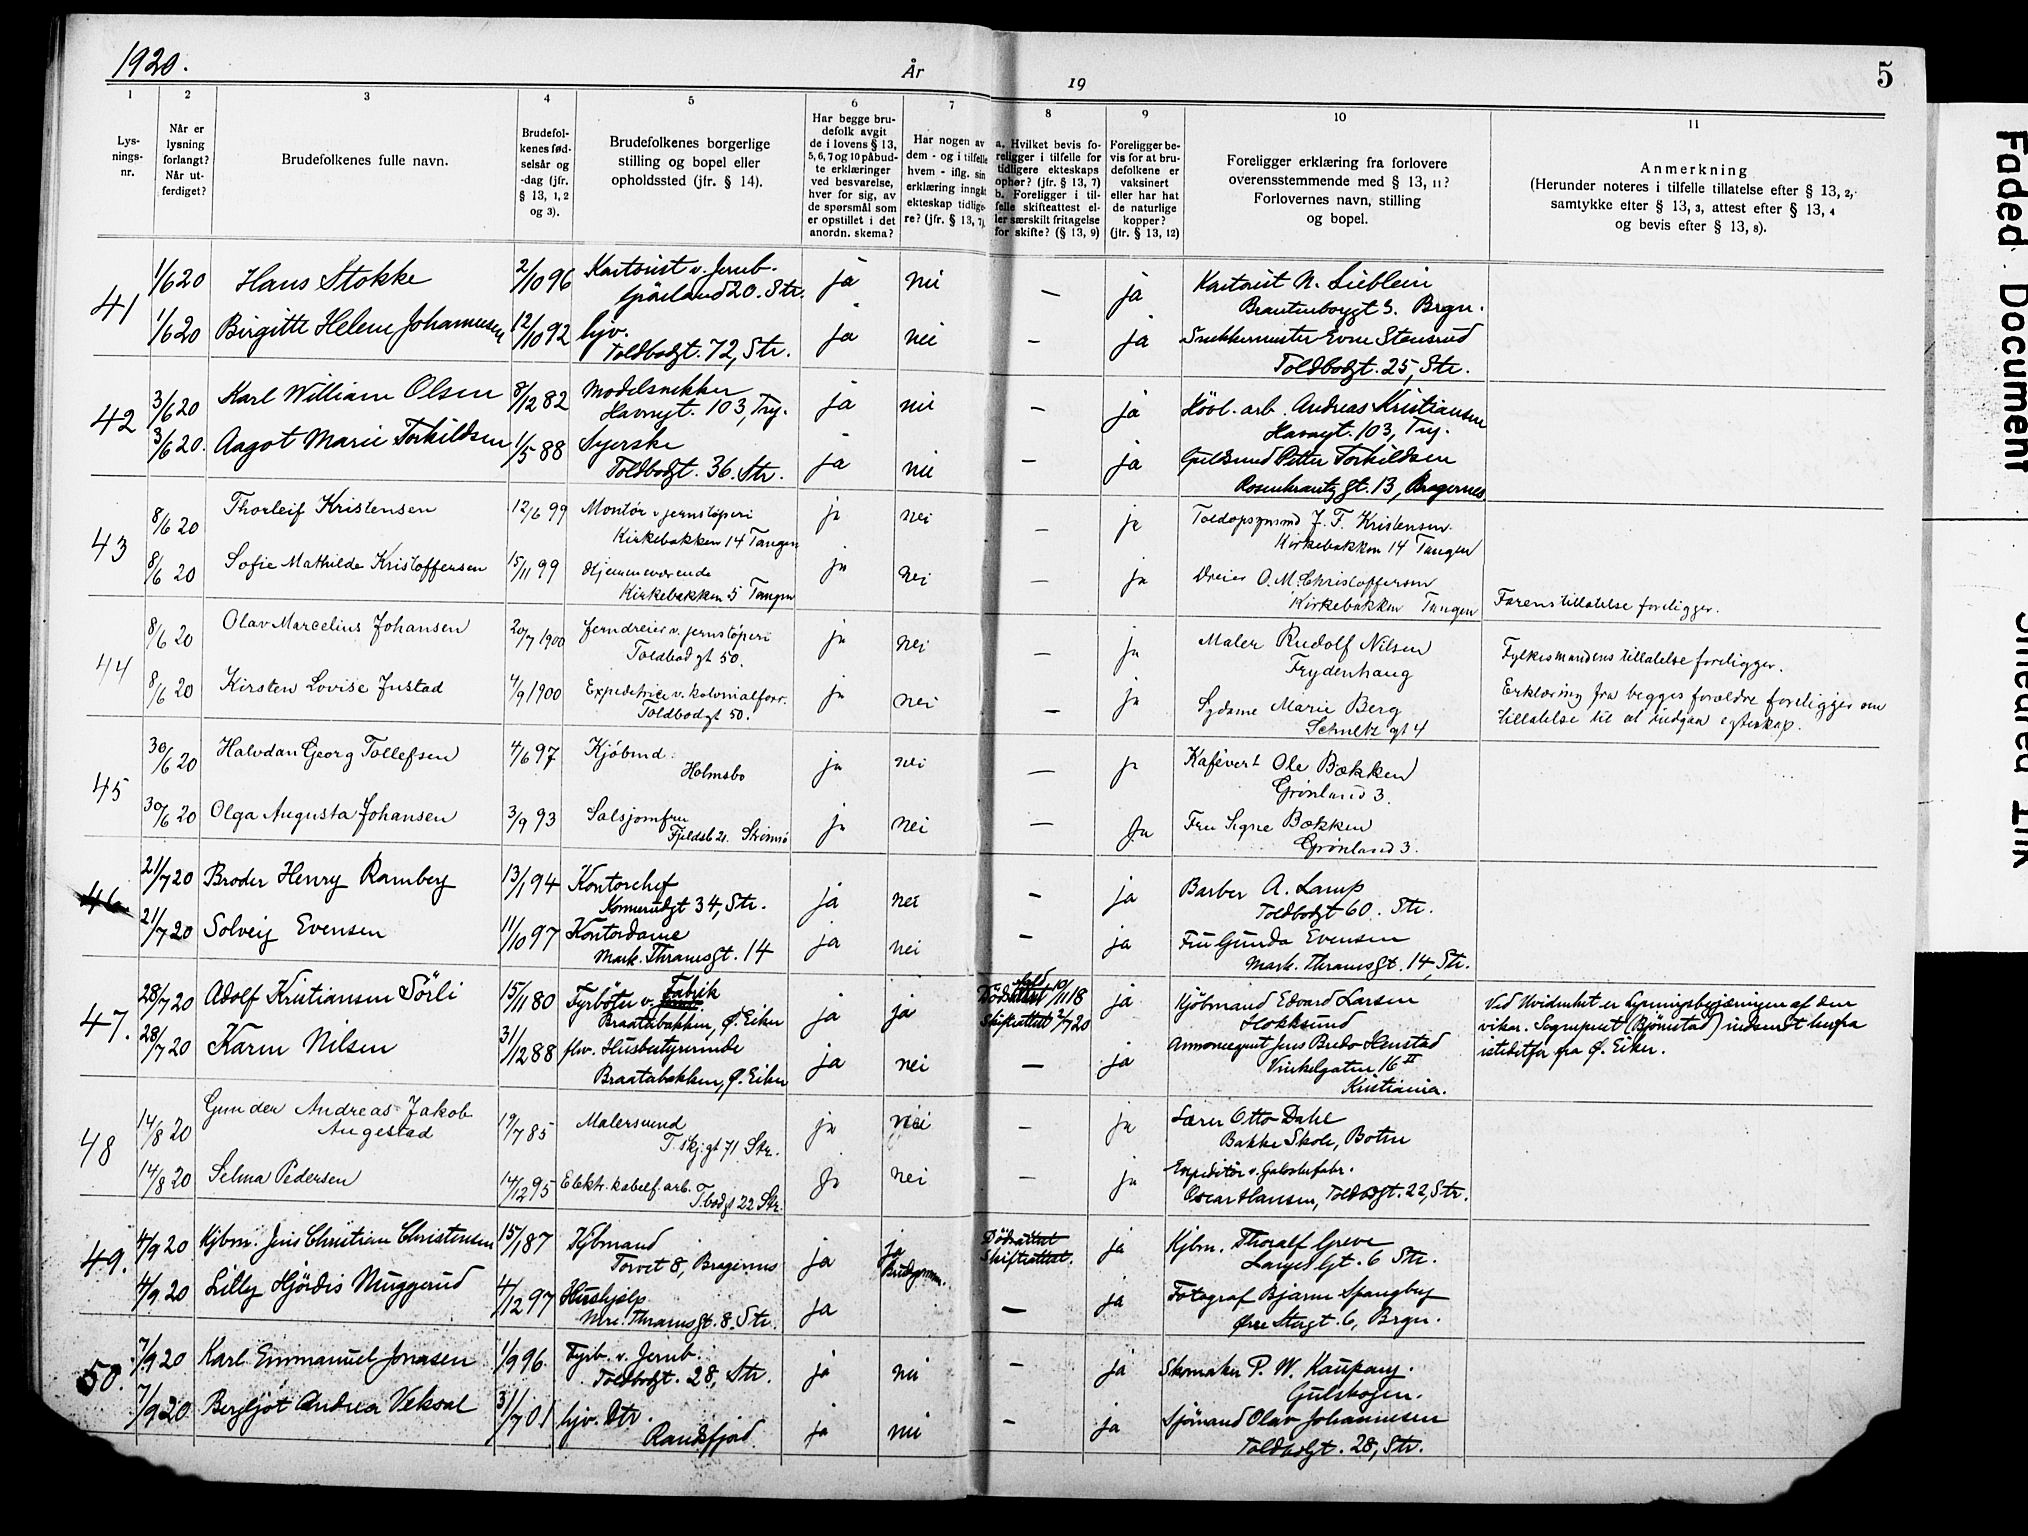 1920.
År
19
5
1
2
3
4
5
6
7
8
9
10
11
Lys-
nings-
nr.
Når er
lysning
forlangt?
Når ut-
ferdiget?
Brudefolkenes fulle navn.
Brudefol-
kenes fød-
selsår og
-dag (jfr.
§ 13, 1, 2
og 3).
Brudefolkenes borgerlige
stilling og bopel eller
opholdssted (jfr. § 14).
Har begge bru-
defolk avgit
de i lovens § 13,
5, 6, 7 og 10 påbud-
te erklæringer
ved besvarelse,
hver for sig, av
de spørsmål som
er opstillet i det
anordn. skema?
Har nogen av
dem - og i tilfelle
hvem - iflg. sin
erklæring inngåt
ekteskap tidlige-
re? (jfr. § 13, 7).
a. Hvilket bevis fo-
religger i tilfelle for
tidligere ekteskaps
ophør? (jfr. § 13, 7)
b. Foreligger i til-
felle skifteattest el-
ler særskilt fritagelse
for skifte? (§ 13, 9)
Foreligger be-
vis for at bru-
defolkene er
vaksinert
eller har hat
de naturlige
kopper?
(jfr. § 13, 12)
Foreligger erklæring fra forlovere
overensstemmende med § 13, 11?
Forlovernes navn, stilling
og bopel.
Anmerkning
(Herunder noteres i tilfelle tillatelse efter § 13, 2,
samtykke efter § 13, 3, attest efter § 13, 4
og bevis efter § 13, 8).
41
1/6 20 Hans Stokke 2/10 96 Kontorist v. Jernb. ja nei — ja Kontorist N. Lieblein
Grönland 20. Str. Brantenborggt 3. Brgn.
1/6 20 Birgitte Helene Johannesen 12/10 92 hjv. ja nei — ja Snekkermester Even Stensrud
Toldbodgt. 72, Str. Toldbodgt. 25, Str.
42
3/6 20 Karl William Olsen 8/12 82 Modelsnekker ja nei — ja Hövl. arb. Andreas Kristiansen
Havnegt. 103, Try. Havnegt. 103, Try.
3/6 20. Aagot Marie Torkildsen 1/5 88 Syerske ja nei — ja Guldsmed Petter Torkildsen
Toldbodgt. 36. Str. Rosenkrantzgt. 13, Bragernes
43
8/6 20 Thorleif Kristensen 12/6 99 Montör v jernstöperi ja nei — ja Toldopsynsmd J. F. Kristensen
Kirkebakken 14 Tangen Kirkebakken 14 Tangen
8/6 20 Sofie Mathilde Kristoffersen 15/11 99 Hjemmeværende ja nei ja Dreier O. M. Christoffersen
Kirkebakken 5 Tangen Kirkebakken Tangen Farens tillatelse foreligger.
44
8/6 20 Olav Marcelius Johansen 20/7 1900 Jerndreier v. jernstöperi ja nei — ja Maler Rudolf Nilsen
Toldbodgt 50. Frydenhaug Fylkesmandens tillatelse foreligger.
8/6 20 Kirsten Lovise Justad 4/9 1900 Expeditrice v. kolonialforr. ja nei — ja Sydame Marie Berg Erklæring fra begges forældre foreligger om
Toldbodgt 50. Schultz gt 4 tillatelse til at indgaa egteskap.
45
30/6 20 Halvdan Georg Tollefsen 4/6 97 Kjöbmd. ja nei — ja Kafévert Ole Bækken
Holmsbo Grönland 3.
30/6 20 Olga Augusta Johansen 3/9 93 Salsjomfru ja nei — Ja Fru Signe Bækken
Fjeldsb 21. Strömsö Grönland 3.
46.
21/7 20 Broder Henry Ramberg 13/1 94 Kontorchef ja nei — ja Barber A. Lamp
Konnerudgt 34, Str. Toldbodgt 60. Str.
21/7 20 Solveig Evensen 11/10 97 Kontordame ja nei — ja Fru Gunda Evensen
Mark. Thranesgt. 14 Mark. Thranesgt. 14, Str.
47.
28/7 20 Adolf Kristiansen Sörli 15/11 80 Fyrböter v. Fabrik ja ja Dödsattest 10/11 18 ja Kjöbmand Edvard Larsen
Braatabakken, Ø. Eiker Skifteattest 2/7 20 Hokksund
28/7 20 Karen Nilsen 31/12 88 fhv. Husbestyrerinde ja nei — ja Annoncegent Jens Bredo Henstad
Braatabakken, Ø. Eiker Vinkelgaten 16 II
Kristiania.
Ved Uvidenhet er lysningsbegjæringen af den
vikar. Sogneprest (Björnstad) indsendt herfra
istedetfor fra Ø. Eiker.
48
14/8 20 Gunder Andreas Jakob 19/7 85 Malersvend ja nei — ja Lærer Otto Dahl
Augestad T. skj. gt 71 Str. Bakke Skole, Botne
14/8 20 Selma Pedersen 14/12 95 Elektr. kabelf. arb. Ja nei — ja Expeditör v. Galoshefabr.
T.bodgt 22 Str. Oscar Hansen, Toldbodgt. 22, Str.
49.
4/9 20 Kjbm. Jens Christian Christensen 15/1 87 Kjbmand ja ja Dödsattest ja Kjbm. Thoralf Greve
Torvet 8, Bragernes Brudgommen. Skifteattest. Langesgt. 6 Str.
4/9 20 Lilly Hjördis Muggerud 4/12 97 Hushjelp ja — ja Fotograf Bjarne Spangberg
Mrc. Thranesgt. 8. Str. Øvre Storgt. 6, Brgn.
50.
7/9 20 Karl Emmanuel Jonasen 1/9 96 Fyrb. v. Jernb. ja nei — ja Skomaker P. W. Kaupang.
Toldbodgt. 28, Str. Gulskogen.
7/9 20 Bergljot Andrea Veksal 31/7 01 hjv. Dtr. ja nei — ja Sjömand Olav Johannesen
Randsfjord Toldbodgt. 28, Str.
Faded Document
Smeared Ink